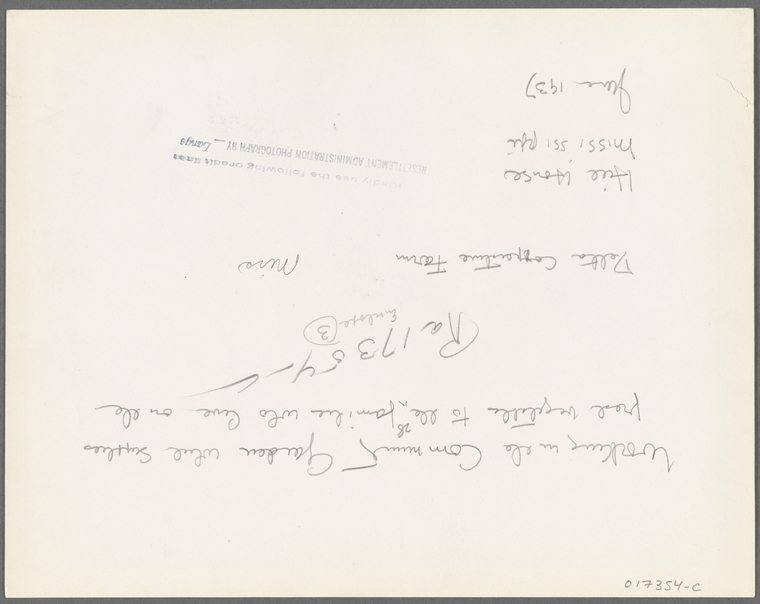 Working in the Community Garden which supplies
fresh vegetables to the 28 families who live on the
Ra 17354-C
Envelope 3
Delta Cooperative Farm Miss
Hill House
Mississippi
June 1937
Kindly use the following credit lines
RESETTLEMENT ADMINISTRATION PHOTOGRAPH BY Lange
017354-C